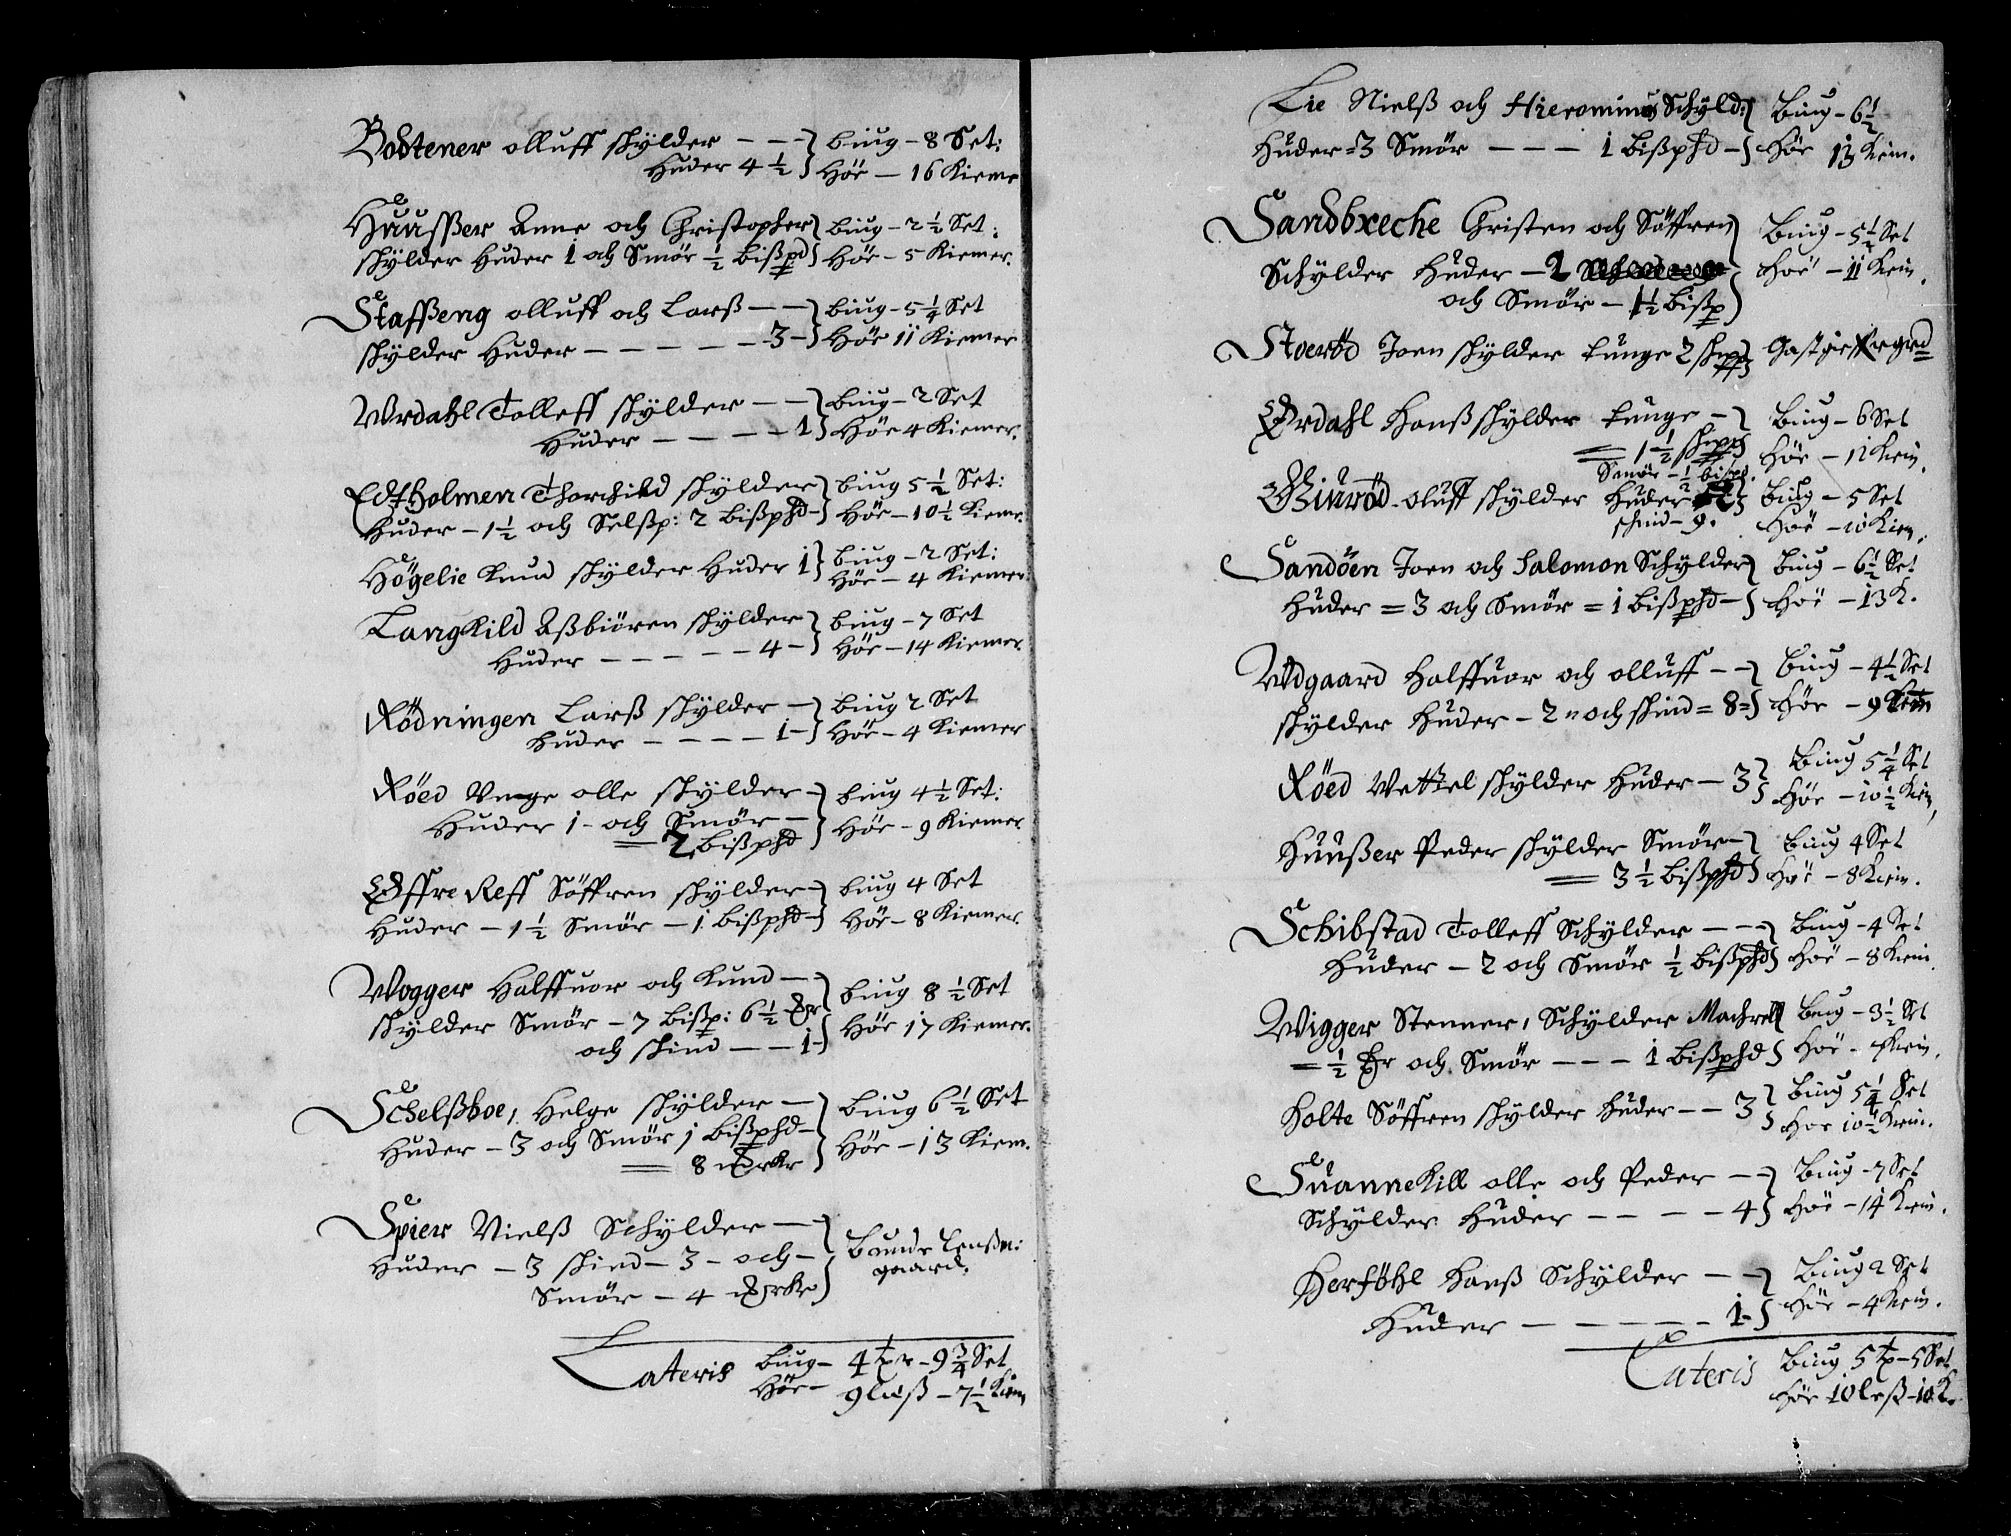 Bodtener olluff skylder - - - } biug - 8 Set:
Huder 4 ½ } Höe - 16 Kiemer
Huusser Anne och Christopher } biug - 2 ½ Set:
skylder Huder 1 och Smör ½ bißpd } Höe - 5 Kiemer.
Stafßeng olluff och Larß - - } biug - 5 ¼ Set
skylder Huder - - - - - - 3 - } Höe 11 Kiemer
Wrdahl Tolleff skylder - - } biug - 2 Set
Huder - - - - 1 } Höe 4 Kiemer.
Edtholmen Thorchild skylder } biug 5 ½ Set:
Huder - 1 ½ och Selßp: 2 bißphd - } Höe - 10 ½ Kiemer.
Högelie Knud skylder Huder 1 } biug - 2 Set:
Höe - 4 Kiemer.
Langkild Aßbiören skylder } biug - 7 Set
Huder - - - - - 4 - } Höe - 14 Kiemer.
Rödningen Larß skylder - } biug 2 Set
Huder - - - - 1 - } Höe - 4 Kiemer
Röed Unge olle skylder - } biug 4 ½ Set:
Huder 1 - och Smör - } Höe - 9 Kiemer.
= 2 bißphd
Öffre Reff Söffren skylder - } biug 4 Set
Huder - 1 ½ Smör - 1 bißphd - } Höe - 8 Kiemer.
Wogger Halffuor och Knud - } biug 8 ½ Set
skylder Smör - 7 bißp: 6 ½ mr } Höe 17 Kiemer.
och skind - - 1 - }
Schelßboe, Helge skylder - } biug 6 ½ Set
Huder - 3 och Smör 1 bißphd - } Höe - 13 Kiem.
= 8 mrkr }
Spier Nielß Schylder - }
Huder - 3 skind - 3 - och - } bunde Lenßm:
gaard.
Smör - 4 mrkr }
Lateris biug - 4 tpr - 9 ¾ Set
Höe - 9 læß - 7 ½ Kiem
Lie Nielß och Hieronimus Schyld: } Biug - 6 ½
Huder = 3 Smör - - - 1 bißphd - } Höe 13 Kiem.
Sandbreche Christen och Söffren } Biug - 5 ½ Set
Schylder Huder - 2 } Höe - 11 Kiem.
och Smör - 1 ½ bißp }
Stoeröd Joen skylder tunge 2 skipp } Gastgieffuergrd
Ördahl Hanß skylder tunge - } Biug - 6 Set
= 1 ½ skippd } Höe - 12 Kiem.
Smör - ½ bißpd.
Ginröd oluff skylder Huder } Biug - 5 Set
skind - 9. Höe - 10 Kiem.
Sandöen Joen och Salomon Schylder } Biug - 6 ½ Set
Huder = 3 och Smör = 1 bißphd - } Höe - 13 K.
Wdgaard Halffuor och olluff - - } Biug - 4 ½ Set
skylder Huder - 2 och skind = 8 = } Höe - 9 Kiem
Röed Vettel skylder Huder - 3 } Biug 5 ¼ Set
Höe - 10 ½ Kiem,
Huußer Peder skylder Smör - } Biug 4 Set
= 3 ½ bißphd } Höe - 8 Kiem.
Schibstad Tolleff Schylder - - - } Biug - 4 Set
Huder - 2 och Smör ½ bißphd } Höe - 8 Kiem.
Wigger Stenner, Schylder Machrell } Biug - 3 ½ Set
= ½ tr och Smör - - - 1 bißphd } Höe - 7 Kiem.
Holte Söffren skylder Huder - - 3 } Biug 5 ¼ Set
Höe 10 ½ Kiem.
Suannekill olle och Peder - - } Biug - 7 Set
Schylder Huder - - - - 4 } Höe - 14 Kiem.
Herföhl Hanß Schylder - - } Biug 2 Set
Huder - - - - - - 1 - } Höe - 4 Kiem.
Lateris Biug 5 tp - 5 Set
Höe 10 leß - 10 K.